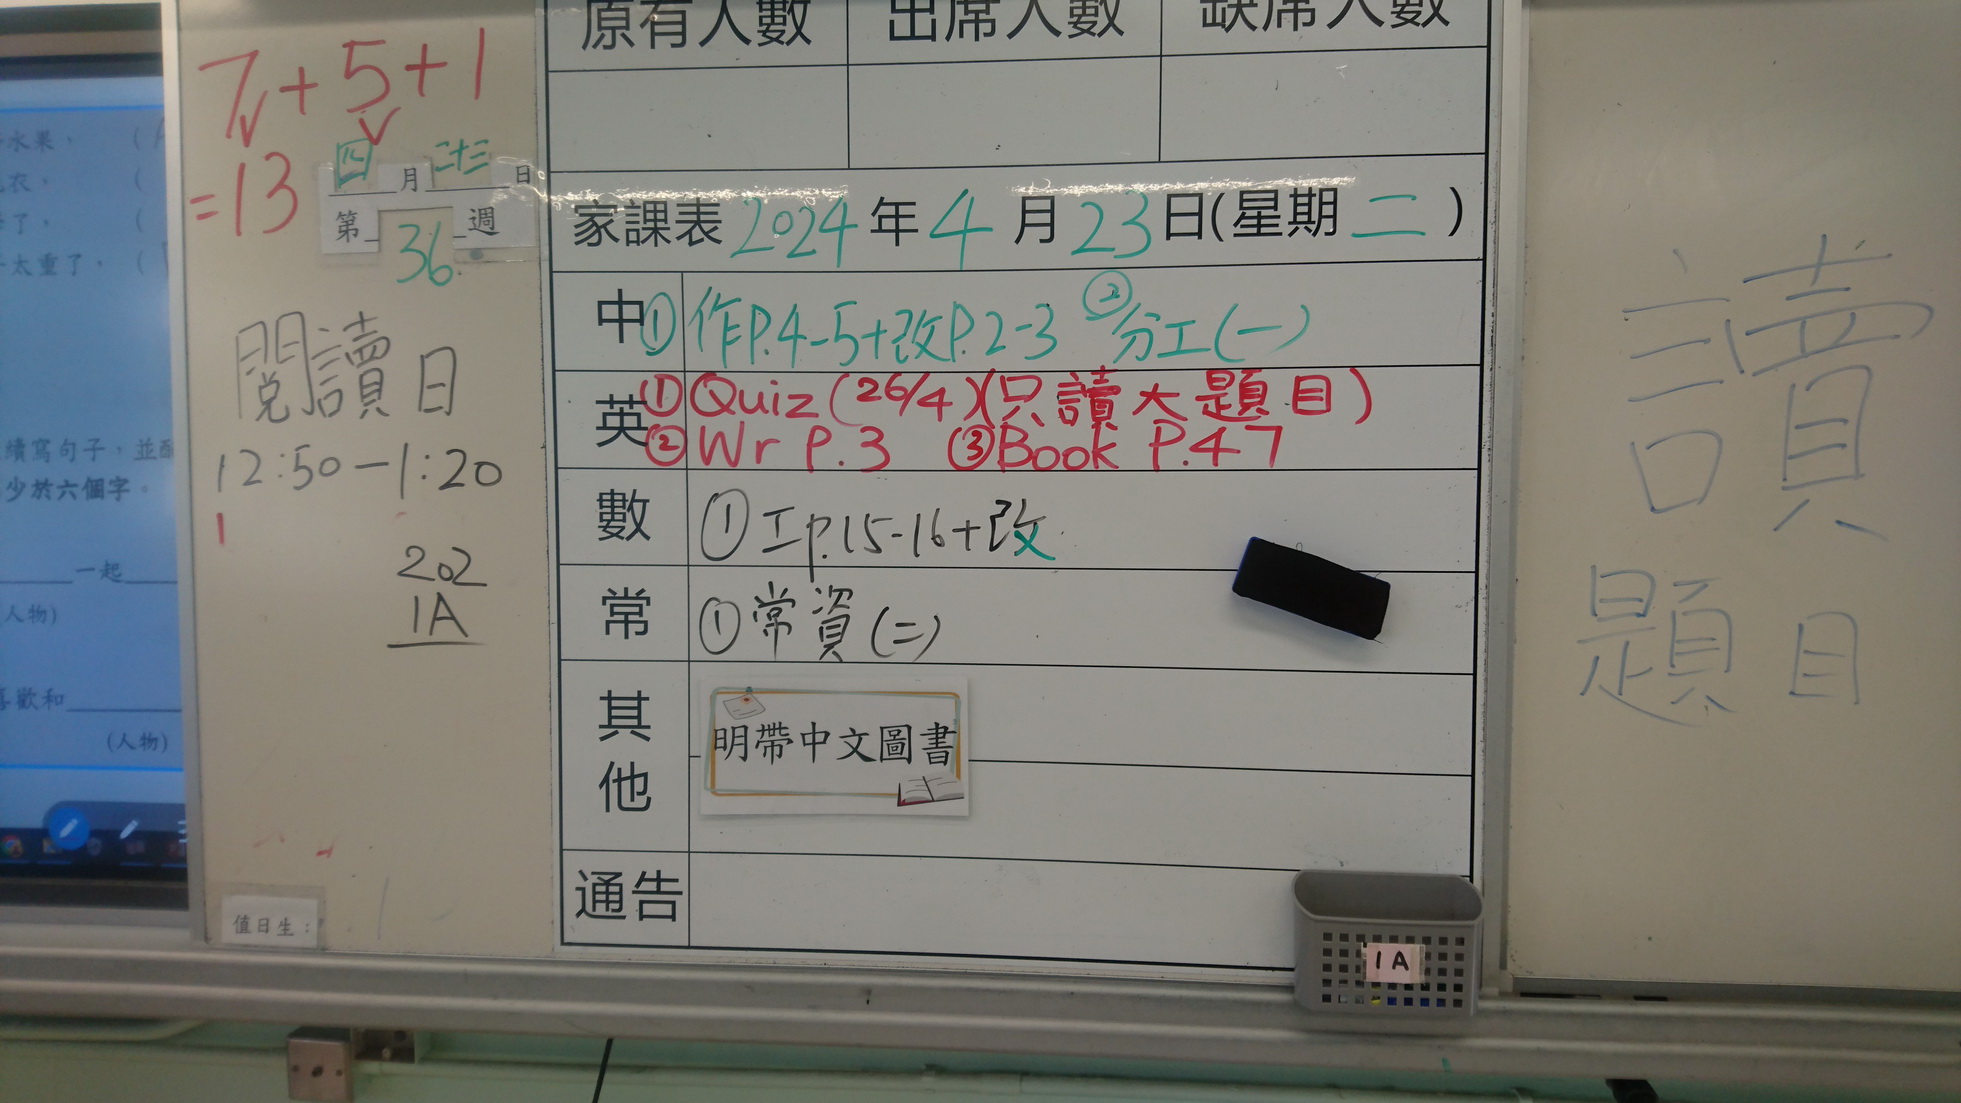 水果，（
衣，（
了，（
太重了，（
續寫句子，並
少於六個字。
一起
人物)
喜歡和
(人物)
7+5+1
=13
四月二十三日
第36週
閱讀日
12:50-1:20
1
202
1A
值日生：
原有人數 出席人數 缺席人數
家課表 2024年4月23日(星期二)
中 ①作P.4-5+改P.2-3 ②分工(一)
英 ①Quiz(26/4)(只讀大題目)
②Wr P.3 ③Book P.47
數 ①工p.15-16+改
常 ①常資(二)
其他
明帶中文圖書
通告
1A
讀
題目